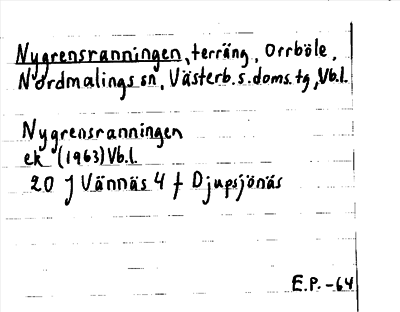 Nygrensranningen, terräng, Orrböle,
Nordmalings sn, Västerb. s. doms. tg, Vb.l.
Nygrensranningen
ek (1963) Vb.l.
20 J Vännäs 4 f Djupsjönäs
E.P. -64